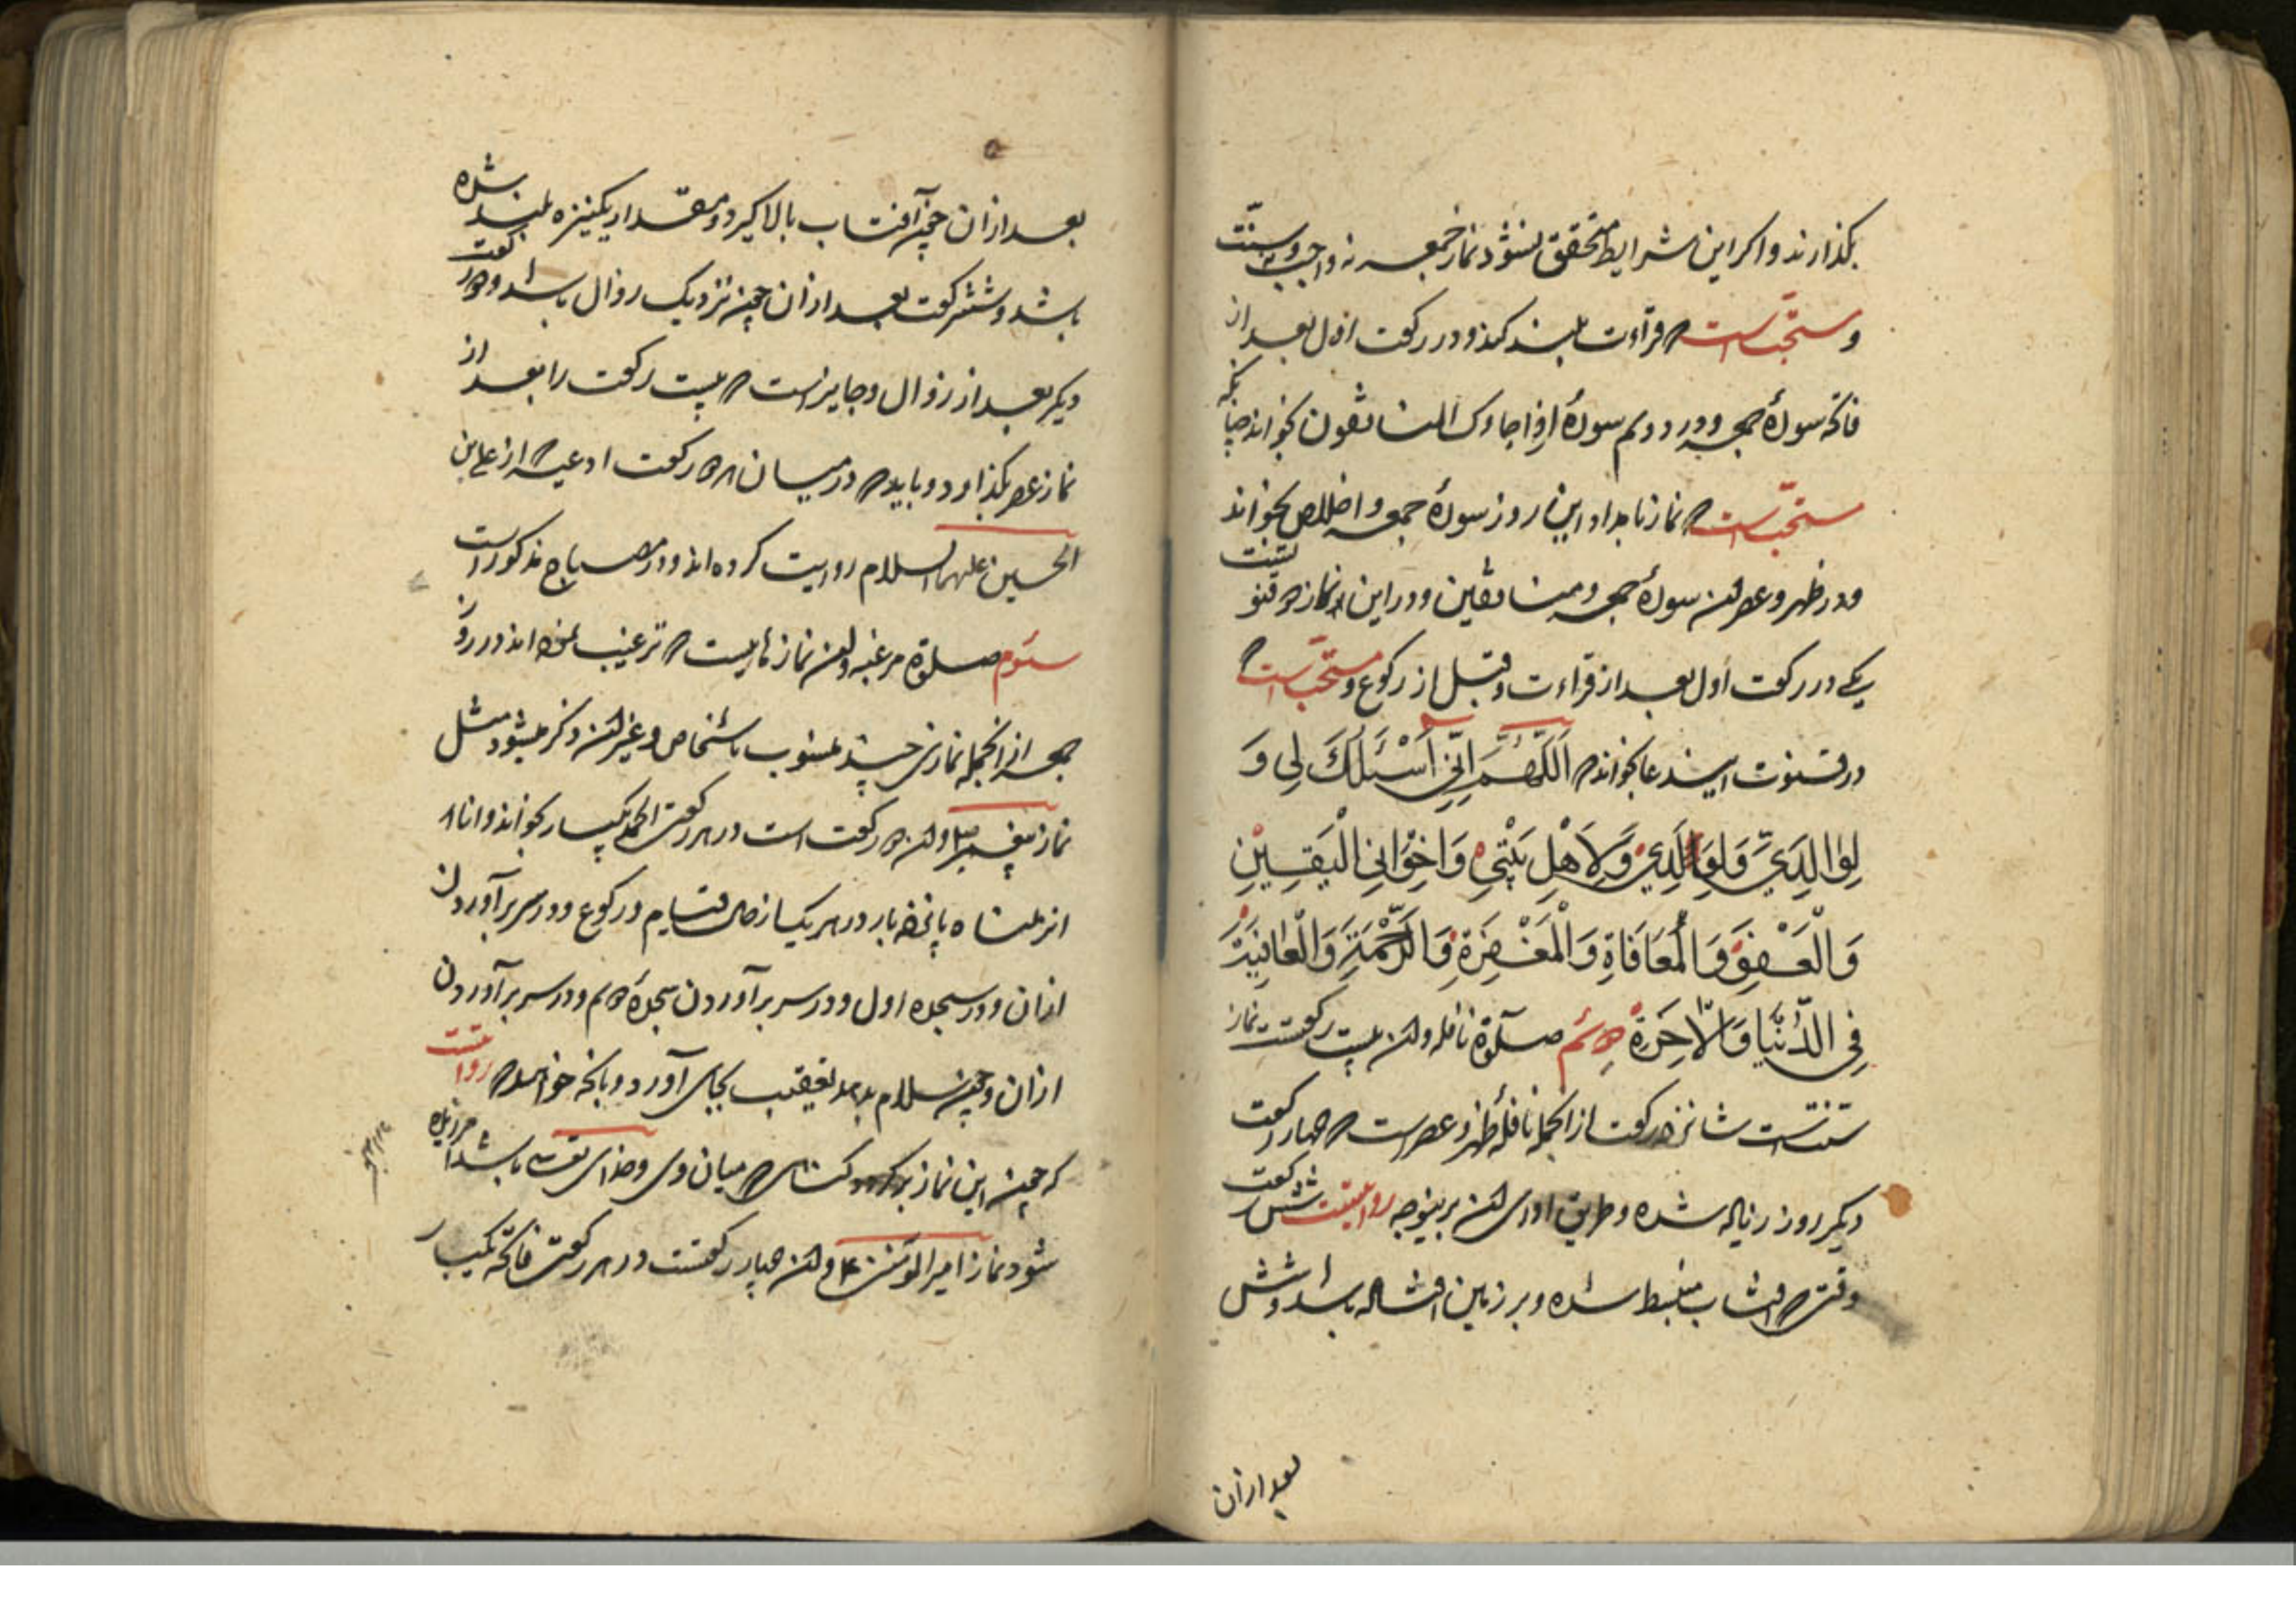 بكذارند و اكر این شرایط متحقق نشود نماز جمعه نه واجبست و نه سنّت
و مستحبّست كه قراءت بلند كند و در ركعت اول بعد از
فاتحه سورهٔ جمعه و در دویم سورهٔ اذا جاءك المنافقون بخواند چنانكه
مستحبّست كه نماز بامداد این روز سورهٔ جمعه و اخلاص بخواند
و در ظهر و عصر سورهٔ جمعه و منافقین و در این نماز دو قنوتست
یكی در ركعت اول بعد از قراءت و قبل از ركوع و مستحبّست كه
در قنوت این دعا بخواند كه اَللّهُمَّ اِنّی اَسْئَلُكَ لِی وَ
لِوٰالِدَیَّ وَلِوَلَدِی وَلِاَهْلِ بَیْتِی وَاِخْوٰانِی الْیَقِینَ
وَالْعَفْوَ وَالْمُعَافَاةِ وَالْمَغْفِرَةِ وَالرَّحْمَةِ وَالْعٰافِیَةَ
فِی الدُّنْیَا وَالْاٰخِرَةِ دویم صلوة نافله و آن بیست ركعت نماز
سنّتست شانزده ركعت از انجمله نافلهٔ ظهر و عصرست كه چهار ركعت
دیكر روز زیاده شده و طریق ادای آن برینوجه روایتست شش ركعت
وقتی كه افتاب منبسط شده و بر زمین افتاده باشد و شش
بعد ازان
بعد ازان چون آفتاب بالا كیرد و مقدار یكنیزه بلند شده
باشد و شش ركعت بعد ازان چون نزدیك زوال باشد و دو ركعت
دیكر بعد از زوال و جایزاست كه بیست ركعت را بعد از
نماز عصر بكذارد و باید كه در میان هر دو ركعت ادعیه كه از علی بن
الحسین علیهما السلام روایت كرده اند و در مصباح مذكور است
سیّوم صلوة مرغبه و آن نمازهائیست كه ترغیب نموده اند در روز
جمعه از انجمله نمازی چند منسوب باشخاص و غیر آن ذكر میشود مثل
نماز پیغمبر و آن دو ركعت است در هر ركعتی الحمد یكبار بخواند و انا
انزلناه پانزده بار در هر یك از حال قیام و ركوع و در سر برآوردن
ازان و در سجده اول و در سر برآوردن سجدهٔ دویم و در سر برآوردن
ازان و چون سلام بدهد تعقیب بجای آورد و بانچه خواهد كه روایتست
كه چون این نماز بكند كناهی كه میان وی و خدای تعالی باشد امرزیده
شود نماز امیرالمؤمنین ع و آن چهار ركعتست در هر ركعتی فاتحه یكبار